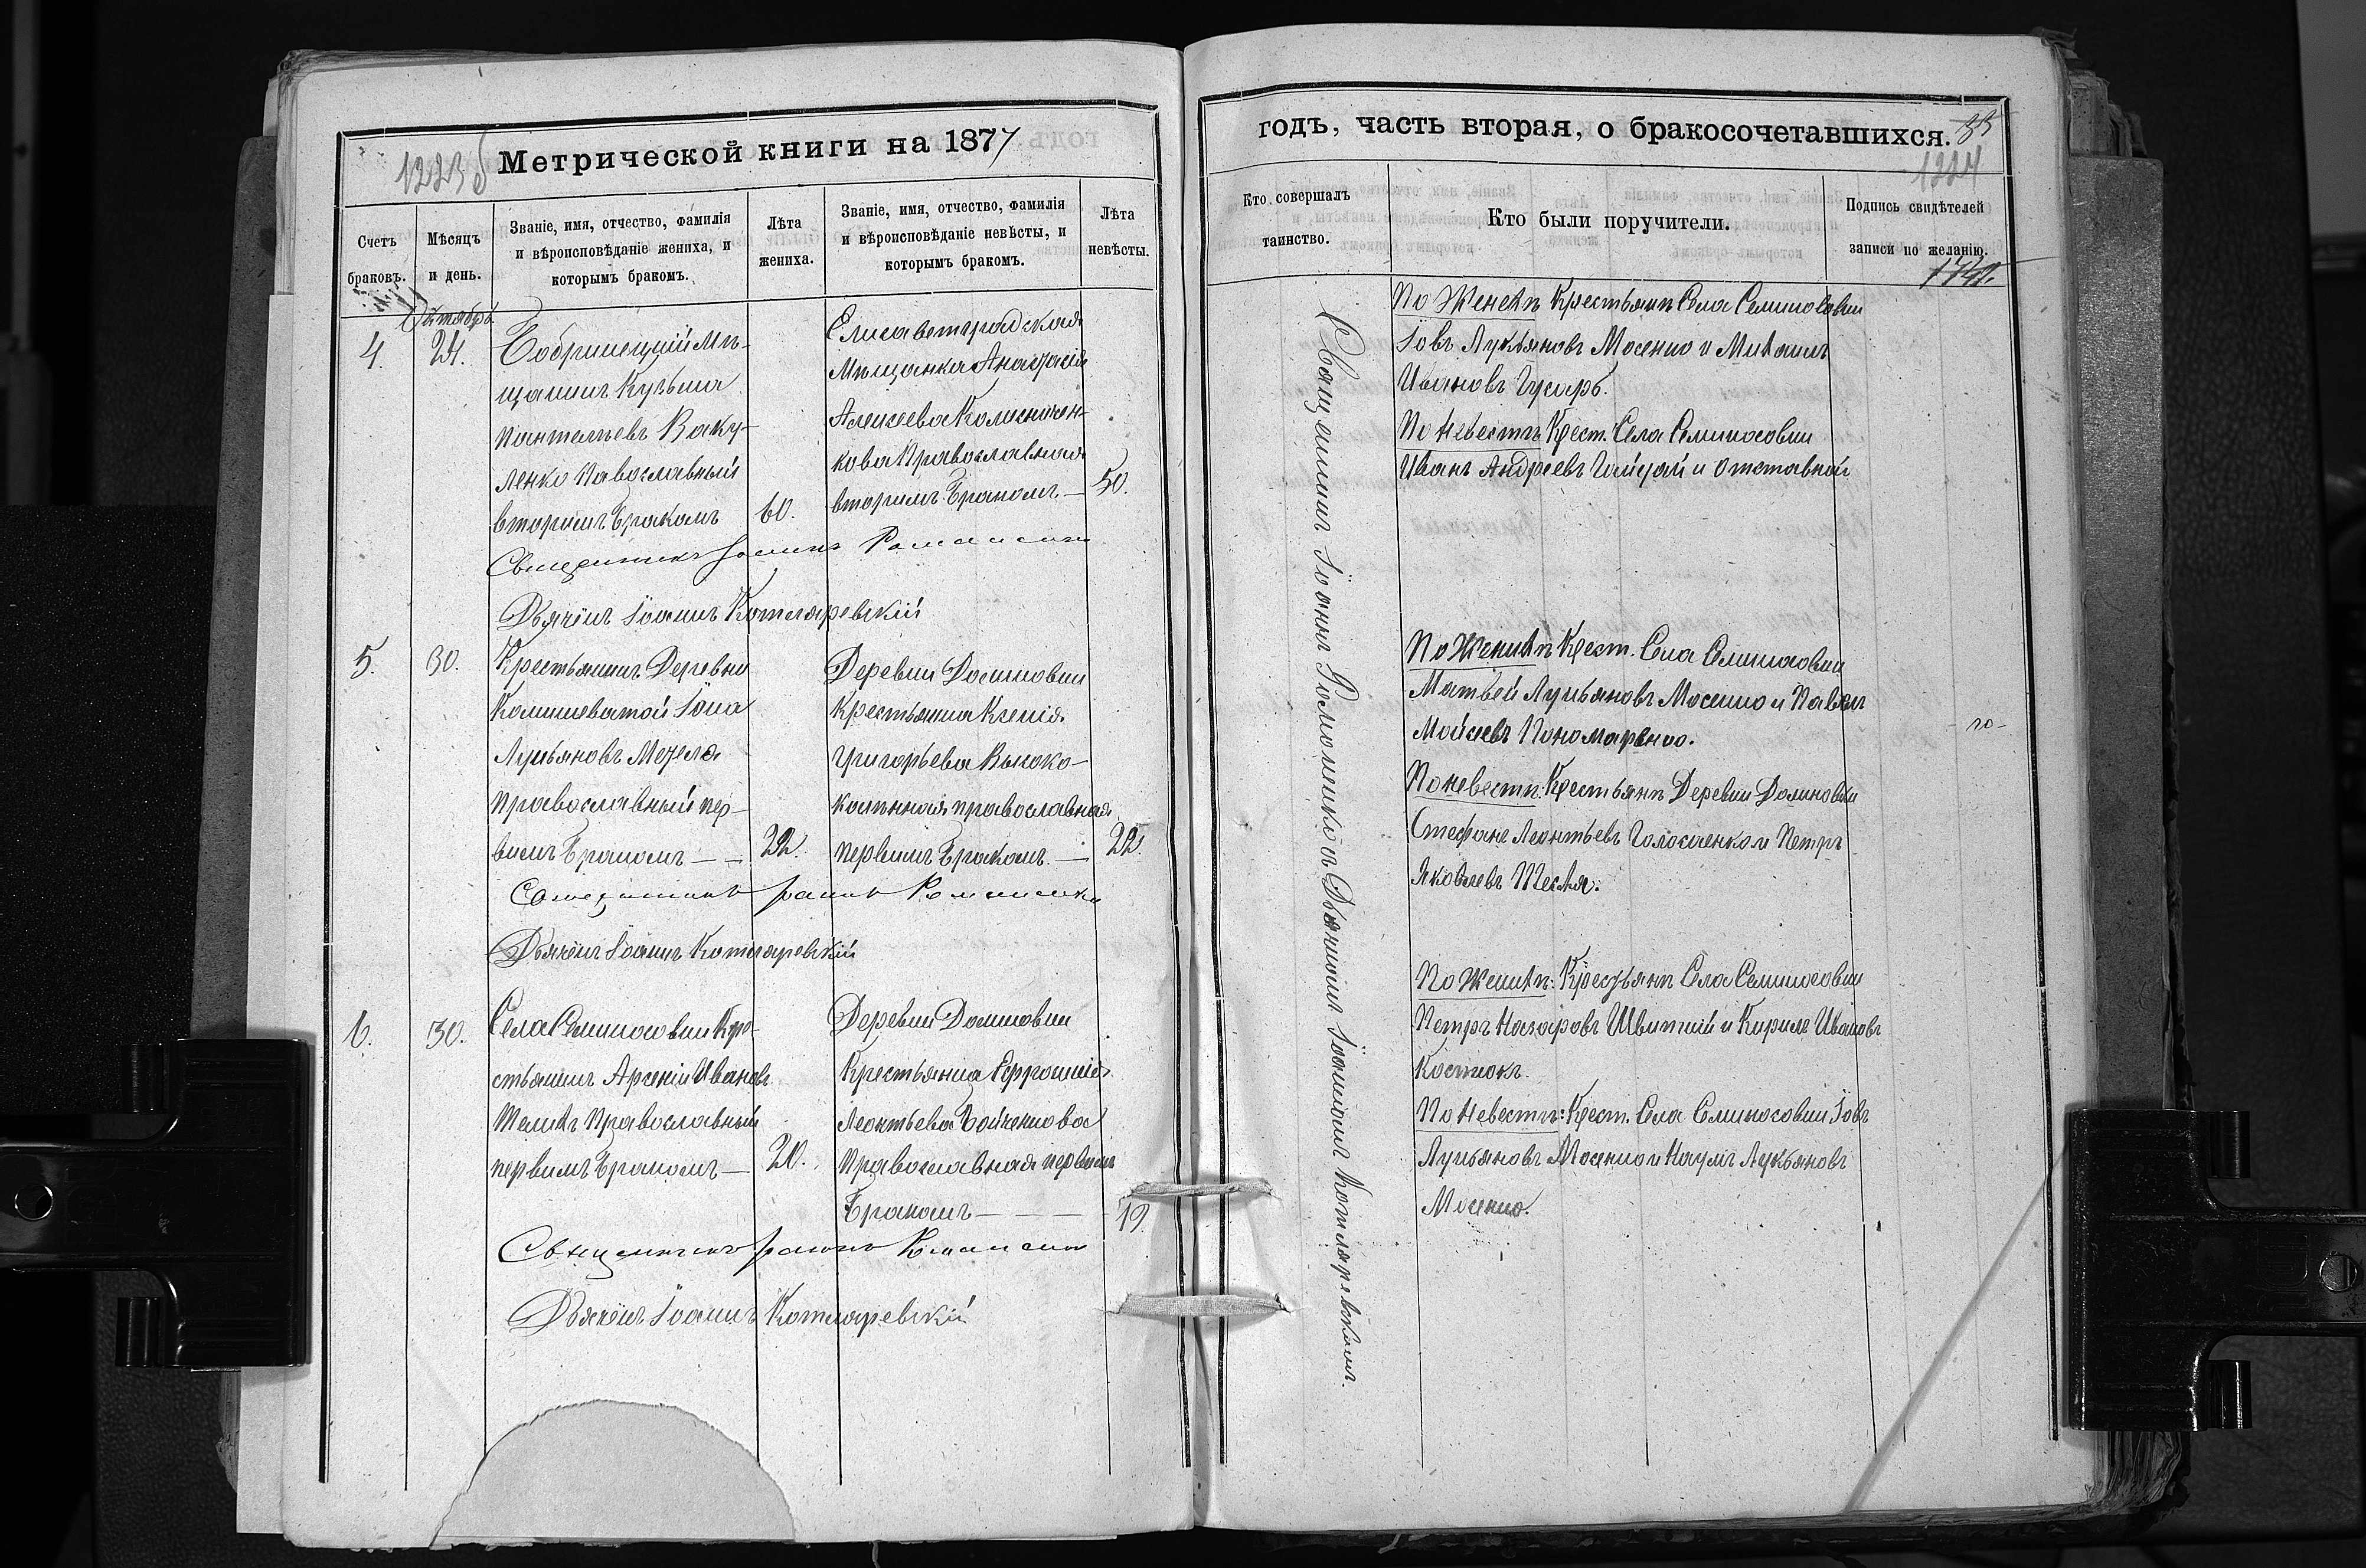 Метрической книги на 1877
годъ, часть вторая, о бракосочетавшихся.
33
1224
Счетъ браковъ.
Мѣсяцъ и день.
Званіе, имя, отчество, фамилія и вѣроисповѣданіе жениха, и которымъ бракомъ.
Лѣта жениха.
Званіе, имя, отчество, фамилія и вѣроисповѣданіе невѣсты, и которымъ бракомъ.
Лѣта невѣсты.
Кто совершалъ таинство.
Кто были поручители.
Подпись свидѣтелей записи по желанію.
4.
24.
Бобринецкій Мѣ-
щанинъ Кузьма
Пантелѣевъ Ваку-
ленко Павославный
вторымъ бракомъ
60.
Елисаветградская
Мѣщанка
Алексѣева
кова Православная
вторымъ бракомъ —
50.
Священникъ Іоаннъ Романенко
Дьячёкъ Іоаннъ Котляревскій
5.
30.
Крестьянинъ Деревни
Камышеватой Іона
Лукьяновъ
православный пер-
вымъ бракомъ — —
22.
Деревни Долиновки
Крестьянка Ксенія
Григорьева Высоко-
православная
первымъ бракомъ. —
22.
Священникъ Іоаннъ Романенко
Дьячёкъ Іоаннъ Котляревскій
6.
30.
Села Семиносовки Кре-
стьянинъ Арсеній Ивановъ
Православный
первымъ бракомъ —
20.
Деревни Долиновки
Крестьянка Ефросинія
Леонтьева Бойченкова
Православная первымъ
бракомъ — — —
19
Священникъ Іоаннъ Романенко
Дьячёкъ Іоаннъ Котляревскій
Священникъ Іоаннъ Романенко съ Дьячкомъ Іоанномъ Котляревскимъ.
По Женихѣ Крестьяне Села Семиносовки
Іовъ Лукьяновъ Мосенко и Михаилъ
Ивановъ Гусаръ.
По Невестѣ Крест. Села Семиносовки
Иванъ Андреевъ и отставной
По Женихѣ Крест. Села Семиносовки
Матвей Лукьяновъ Мосенко и Павелъ
Мойсеевъ Пономаренко.
По невестѣ: Крестьяне Деревни Долиновки
Стефанъ Леонтьевъ и Петръ
Яковлевъ Тесля.
По Женихѣ: Крестьяне Села Семиносовки
Петръ Назаровъ и Кирилъ Ивановъ
Костюкъ.
По Невестѣ: Крест. Села Семиносовки Іовъ
Лукьяновъ Мосенко и Наумъ Лукьяновъ
Мосенко.